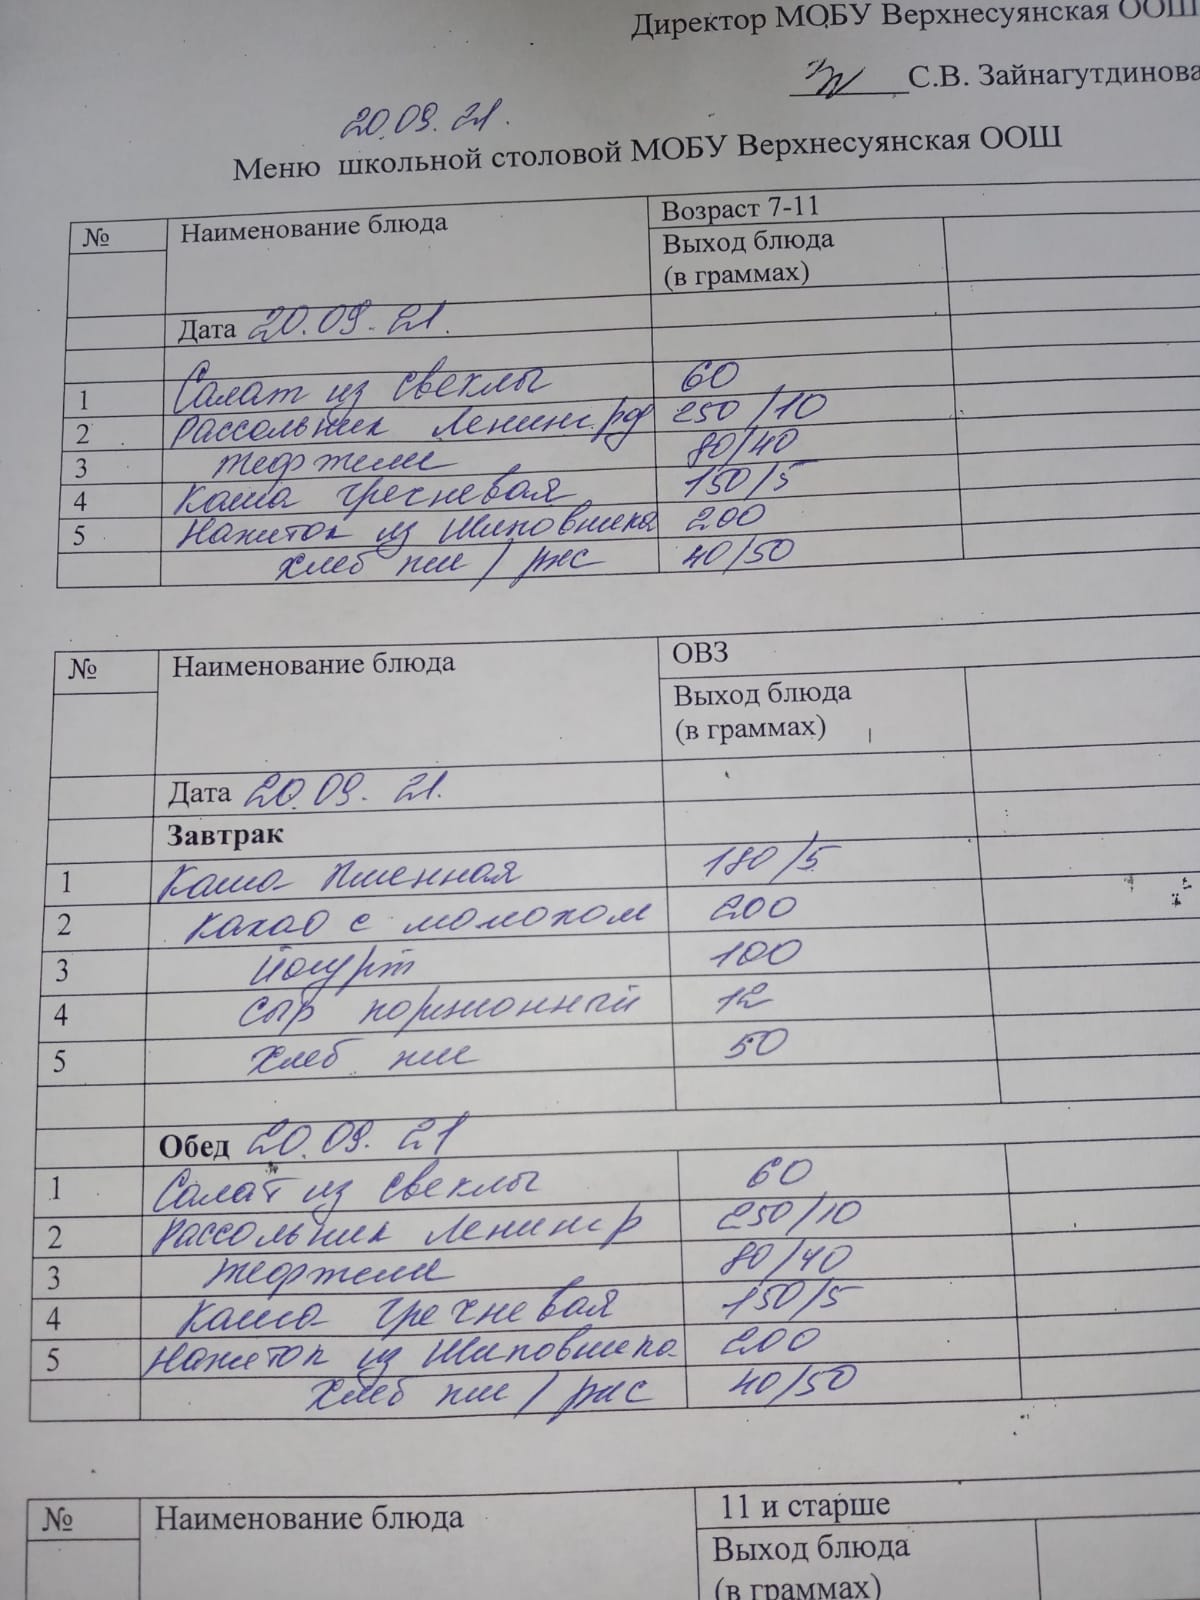 Директор МОБУ Верхнесуянская ООШ
С.В. Зайнагутдинова
20.09.21.
Меню школьной столовой МОБУ Верхнесуянская ООШ
№ Наименование блюда Возраст 7-11
Выход блюда
(в граммах)
Дата 20.09.21.
1 Салат из свеклы 60
2 Рассольник Ленингрд 250/10
3 тефтели 80/40
4 Каша гречневая 150/5
5 Напиток из Шиповника 200
Хлеб пш/рж 40/50
№ Наименование блюда ОВЗ
Выход блюда
(в граммах)
Дата 20.09.21.
Завтрак
1 Каша Пшенная 180/5
2 Какао с молоком 200
3 Йогурт 100
4 Сыр порционный 12
5 Хлеб пш 50
Обед 20.09.21
1 Салат из свеклы 60
2 Рассольник Ленингр 250/10
3 тефтели 80/40
4 Каша гречневая 150/5
5 Напиток из Шиповника 200
Хлеб пш/ 40/50
№ Наименование блюда 11 и старше
Выход блюда
(в граммах)